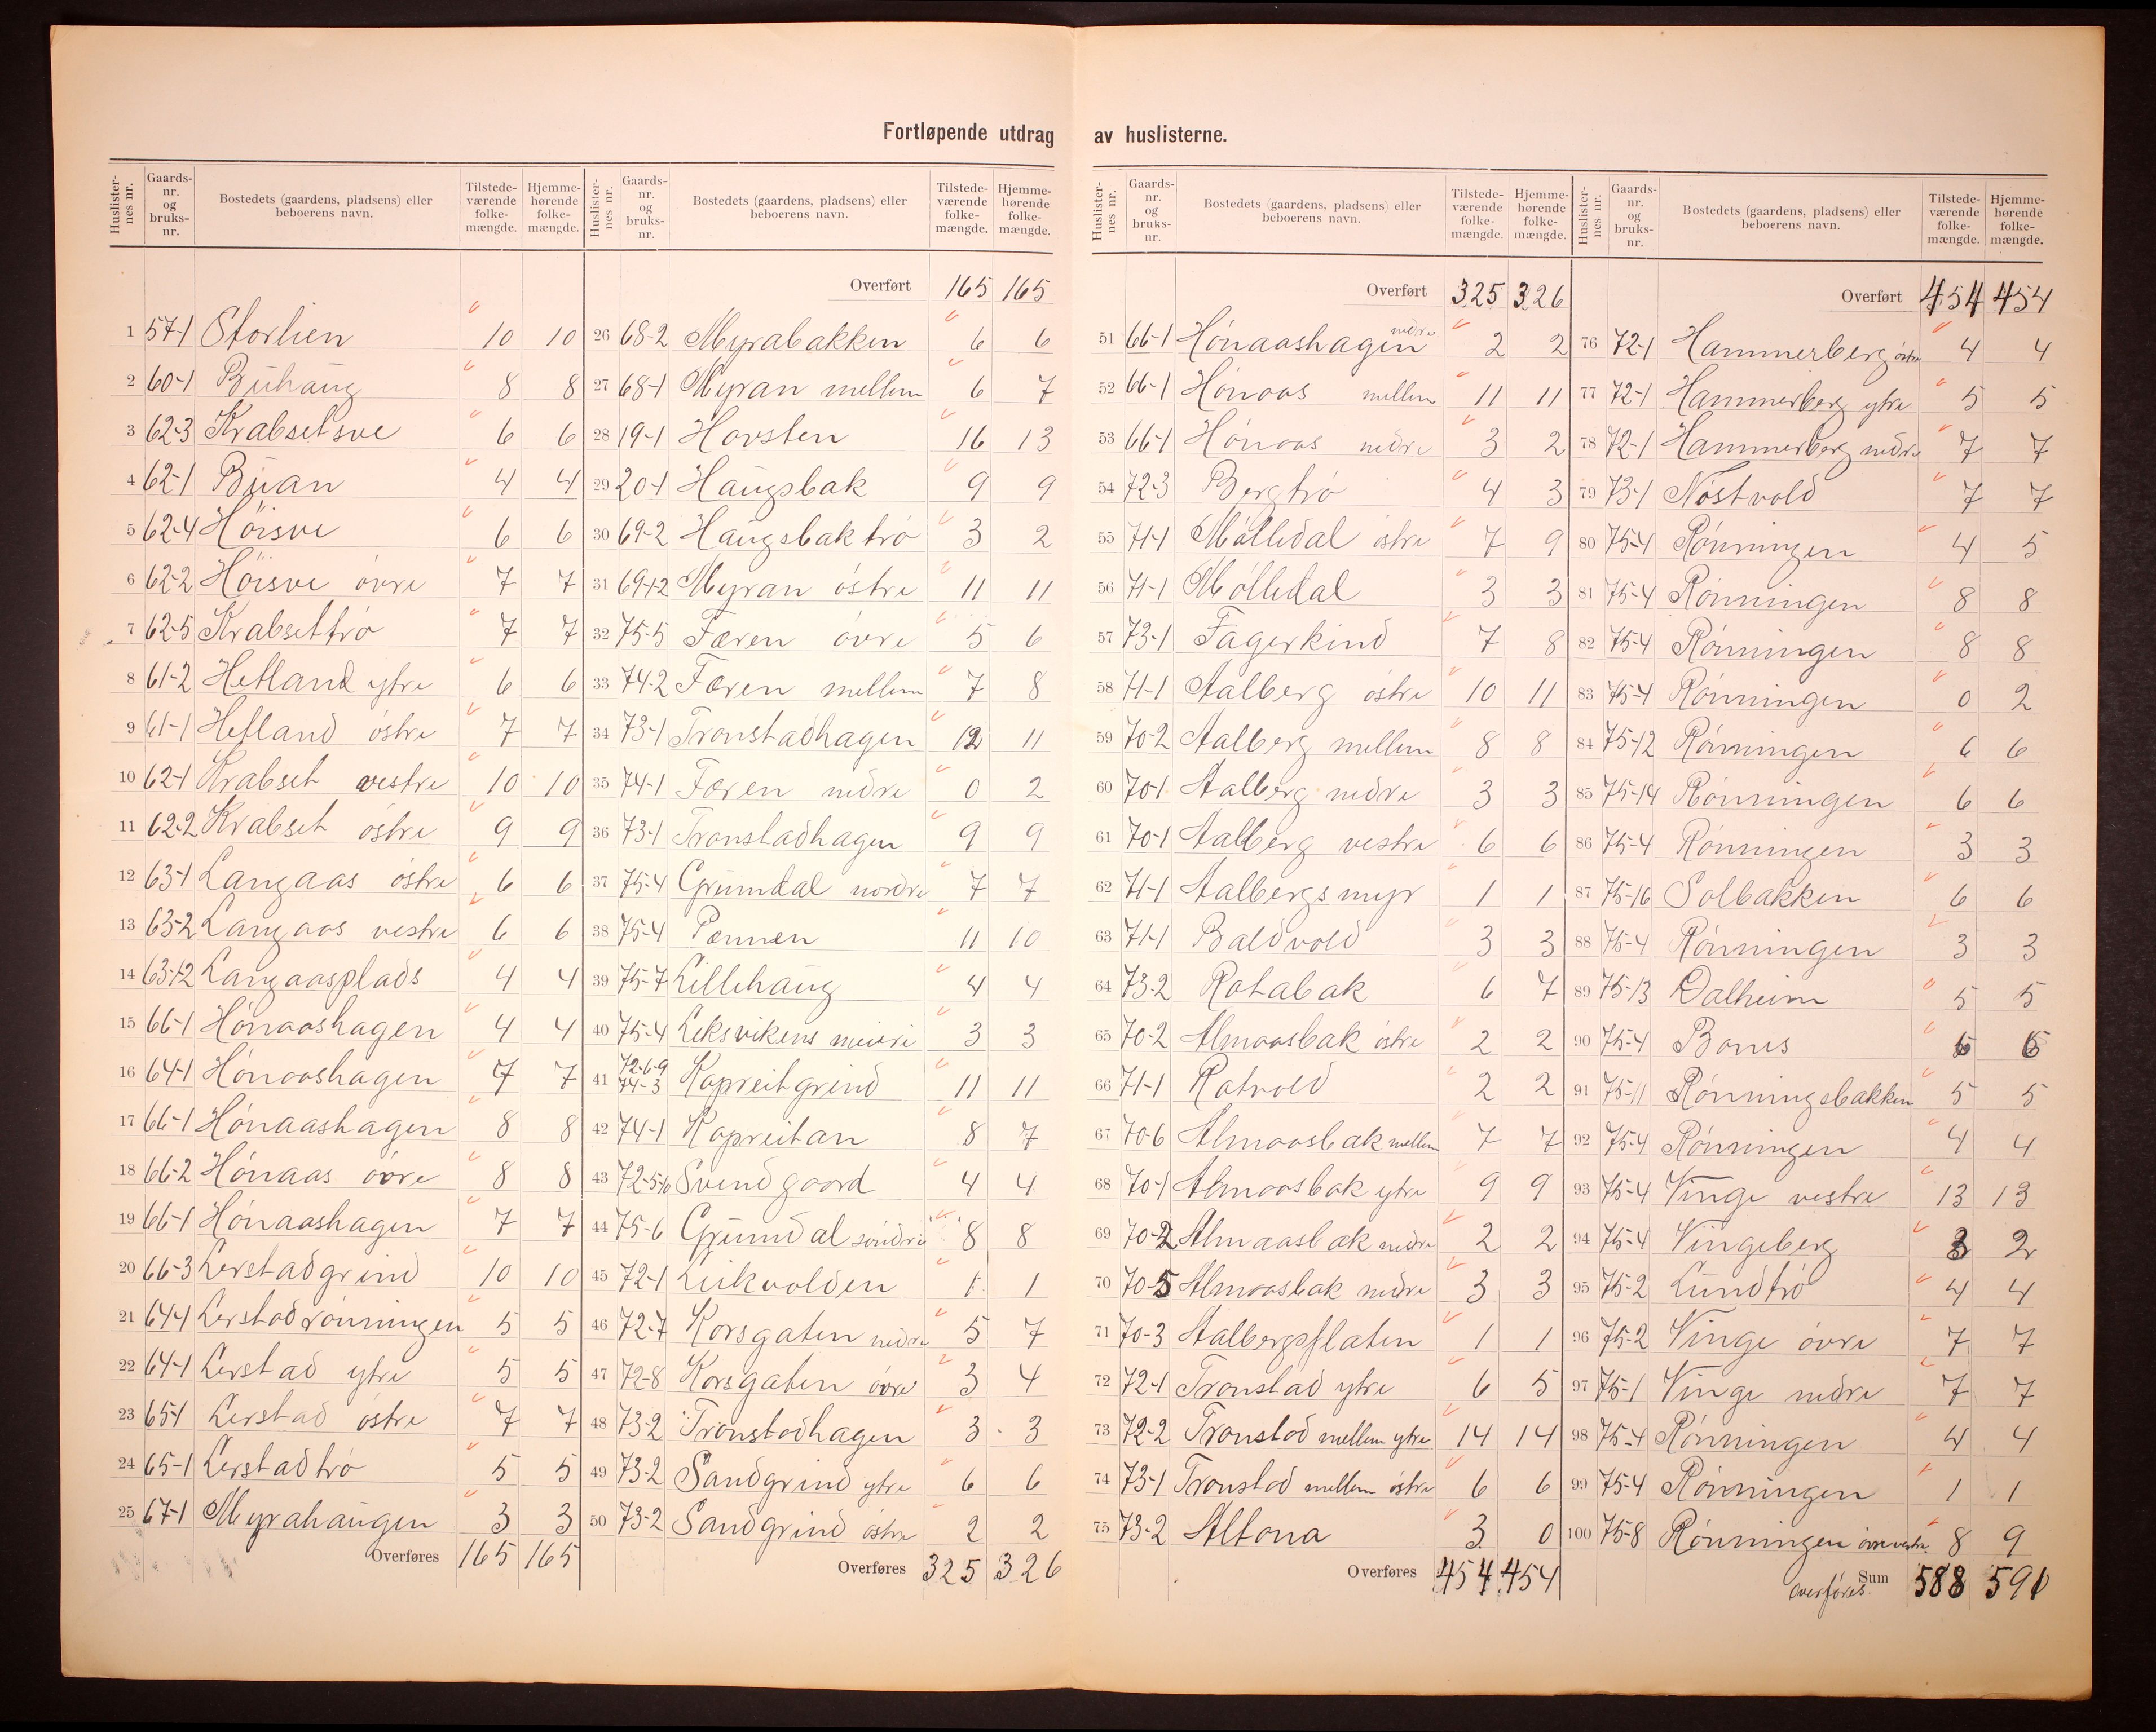 Fortløpende utdrag av huslisterne.
Huslister-nes nr. Gaards-nr. og bruks-nr. Bostedets (gaardens, pladsens) eller beboerens navn. Tilstede-værende folke-mængde. Hjemme-hørende folke-mængde.
1 57-1 Storlien 10 10
2 60-1 Buhaug 8 8
3 62-3 Krabsetsve 6 6
4 62-1 Buan 4 4
5 62-4 Höisve 6 6
6 62-2 Höisve óvre 7 7
7 62-5 Krabsettró 7 7
8 61-2 Hetland ytre 6 6
9 61-1 Hetland óstre 7 7
10 62-1 Krabset vestre 10 10
11 62-2 Krabset óstre 9 9
12 63-1 Langaas óstre 6 6
13 63-2 Langaas vestre 6 6
14 63-1-2 Langaasplads 4 4
15 66-1 Hónaashagen 4 4
16 64-1 Hónaashagen 7 7
17 66-1 Hónaashagen 8 8
18 66-2 Hónaas óvre 8 8
19 66-1 Hónaashagen 7 7
20 66-3 Lerstadgrind 10 10
21 64-1 Lerstadrónningen 5 5
22 64-1 Lerstad ytre 5 5
23 65-1 Lerstad óstre 7 7
24 65-1 Lerstadtró 5 5
25 67-1 Myrahaugen 3 3
Overføres 165 165
Huslister-nes nr. Gaards-nr. og bruks-nr. Bostedets (gaardens, pladsens) eller beboerens navn. Tilstede-værende folke-mængde. Hjemme-hørende folke-mængde.
Overført 165 165
26 68-2 Myrabakken 6 6
27 68-1 Myran mellem 6 7
28 19-1 Hovsten 16 13
29 20-1 Haugsbak 9 9
30 69-2 Haugsbaktró 3 2
31 69-1-2 Myran óstre 11 11
32 75-5 Færen óvre 5 6
33 74-2 Færen mellem 7 8
34 73-1 Tronstadhagen 12 11
35 74-1 Færen nedre 0 2
36 73-1 Tronstadhagen 9 9
37 75-4 Grumdal nordre 7 7
38 75-4 Pænnen 11 10
39 75-7 Lillehaug 4 4
40 75-4 Leksvikens meieri 3 3
41 72-6-9 74-3 Kopreitgrind 11 11
42 74-1 Kopreitan 8 7
43 72-5-10 Svendgaard 4 4
44 75-6 Grumdal sóndre 8 8
45 72-1 Leikvolden 1 1
46 72-7 Korsgaten nedre 5 7
47 72-8 Korsgaten óvre 3 4
48 73-2 Tronstadhagen 3 3
49 73-2 Sandgrind ytre 6 6
50 73-2 Sandgrind óstre 2 2
Overføres 325 326
Huslister-nes nr. Gaards-nr. og bruks-nr. Bostedets (gaardens, pladsens) eller beboerens navn. Tilstede-værende folke-mængde. Hjemme-hørende folke-mængde.
Overført 325 326
51 66-1 Hónaashagen nedre 2 2
52 66-1 Hónaas mellem 11 11
53 66-1 Hónaas nedre 3 2
54 72-3 Bergtró 4 3
55 71-1 Mólledal óstre 7 9
56 71-1 Mólledal 3 3
57 73-1 Fagerkind 7 8
58 71-1 Aalberg óstre 10 11
59 70-2 Aalberg mellem 8 8
60 70-1 Aalberg nedre 3 3
61 70-1 Aalberg vestre 6 6
62 71-1 Aalbergsmyr 1 1
63 71-1 Baldvold 3 3
64 73-2 Rotabak 6 7
65 70-2 Almaasbak óstre 2 2
66 71-1 Ratvold 2 2
67 70-6 Almaasbak mellem 7 7
68 70-1 Almaasbak ytre 9 9
69 70-2 Almaasbak nedre 2 2
70 70-5 Almaasbak nedre 3 3
71 70-3 Aalbergsflaten 1 1
72 72-1 Tronstad ytre 6 5
73 72-2 Tronstad mellem ytre 14 14
74 73-1 Tronstad mellem óstre 6 6
75 73-2 Altona 3 0
Overføres 454 454
Huslister-nes nr. Gaards-nr. og bruks-nr. Bostedets (gaardens, pladsens) eller beboerens navn. Tilstede-værende folke-mængde. Hjemme-hørende folke-mængde.
Overført 454 454
76 72-1 Hammerberg óstre 4 4
77 72-1 Hammerberg ytre 5 5
78 72-1 Hammerberg nedre 7 7
79 73-1 Nóstvold 7 7
80 75-4 Rónningen 4 5
81 75-4 Rónningen 8 8
82 75-4 Rónningen 8 8
83 75-4 Rónningen 0 2
84 75-12 Rónningen 6 6
85 75-14 Rónningen 6 6
86 75-4 Rónningen 3 3
87 75-16 Solbakken 6 6
88 75-4 Rónningen 3 3
89 75-13 Dalheim 5 5
90 75-4 Bones 6 6
91 75-11 Rónningsbakken 5 5
92 75-4 Rónningen 4 4
93 75-4 Vinge vestre 13 13
94 75-4 Vingeberg 3 2
95 75-2 Lundtró 4 4
96 75-2 Vinge óvre 7 7
97 75-1 Vinge nedre 7 7
98 75-4 Rónningen 4 4
99 75-4 Rónningen 1 1
100 75-8 Rónningen óvre vestre 8 9
Sum overfóres. 588 591